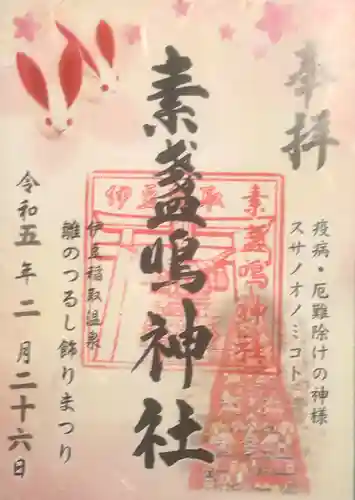 奉拝
疫病・厄難除けの神様
スサノオノミコト
素盞鳴神社
伊豆稲取
素盞鳴神社
伊豆稲取温泉
雛のつるし飾りまつり
令和五年二月二十六日